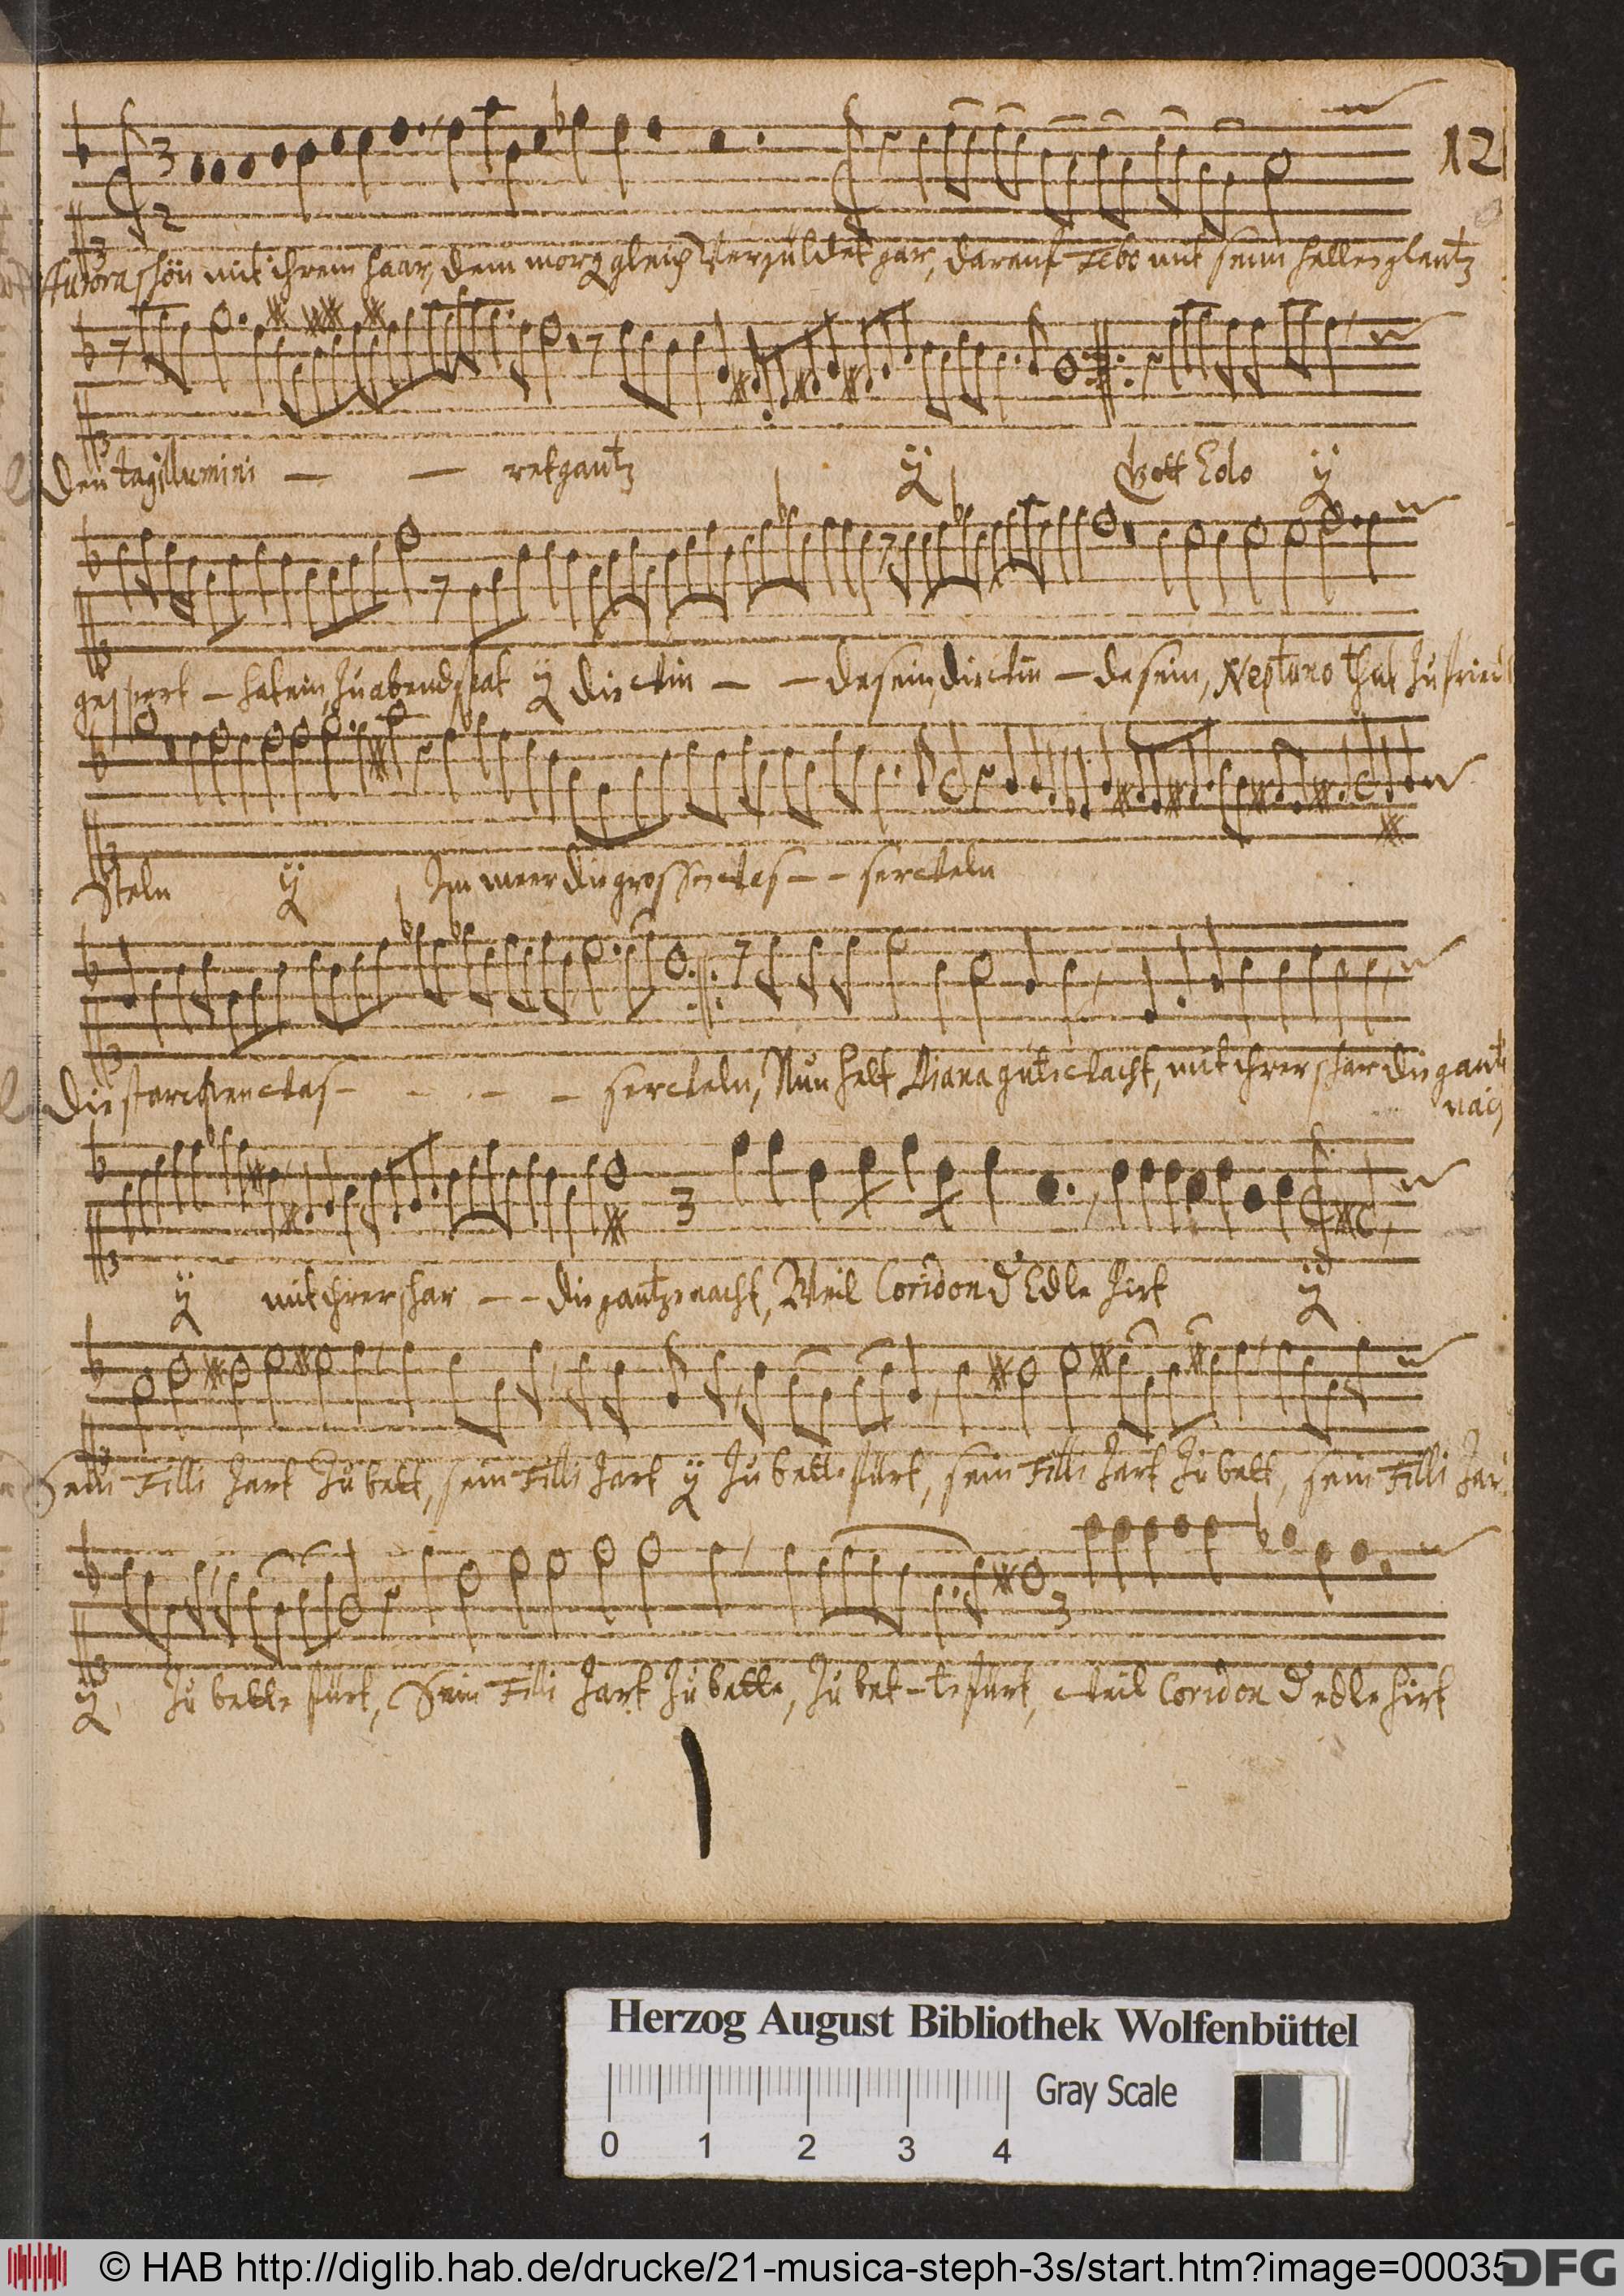 12
Aurora schön mit ihrem haar, dem morg gleich Vergüldet gar, darauf Febo mit seim hellen glantz
den tag illumini — — ret gantz ÿ Gott Eolo ÿ
gesperrt – hat ein, Zu abendzeit ÿ die win – – de sein, die win – de sein, Neptuno thut zu fried
Steln ÿ Im meer die grossen was – – ser weln
die starcken was – – – – ser weln, Nun helt Diana gute wacht, mit ihrer schar die gantz
nach
ÿ mit ihrer schar – – die gantze nacht, Weil Coridon d' Edle Hirt ÿ
Sein Filli Zart Zu bett, sein Filli Zart ÿ Zu bette fürt, sein Filli Zart Zu bett, sein Filli Zar
ÿ Zu bette fürt, Sein Filli Zart Zu bette, Zu bet – te fürt, weil Coridon d' edle hirt
Herzog August Bibliothek Wolfenbüttel
Gray Scale
0 1 2 3 4
© HAB http://diglib.hab.de/drucke/21-musica-steph-3s/start.htm?image=00035
DFG